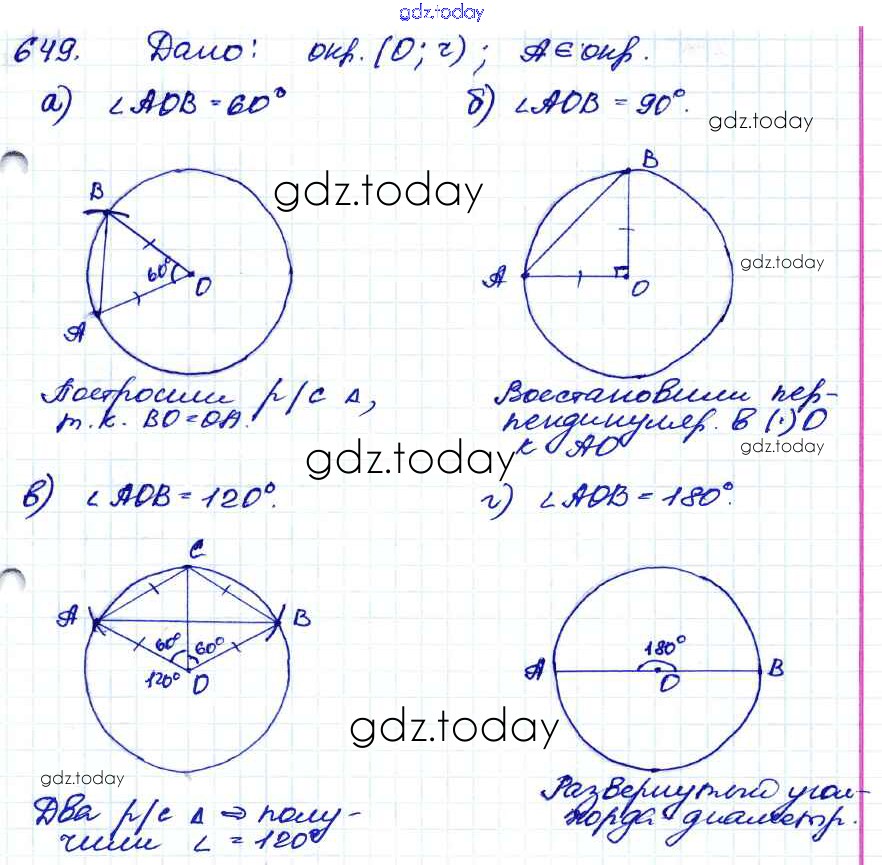 gdz.today
649. Дано: окр. (O; r); A∈окр.
а) ∠AOB = 60° б) ∠AOB = 90°.
gdz.today
gdz.today
B
60°
O
A
B
A
O
gdz.today
Построили р/с Δ,
т.к. BO=OA.
Восстановили пер-
пендикуляр. в (·) O
к AO
gdz.today
gdz.today
в) ∠AOB = 120°.
г) ∠AOB = 180°.
C
A
B
60° 60°
120°
O
180°
A
O
B
gdz.today
gdz.today
Два р/с Δ ⇒ полу-
чили ∠ = 120°
Развернутый угол-
хорда-диаметр.